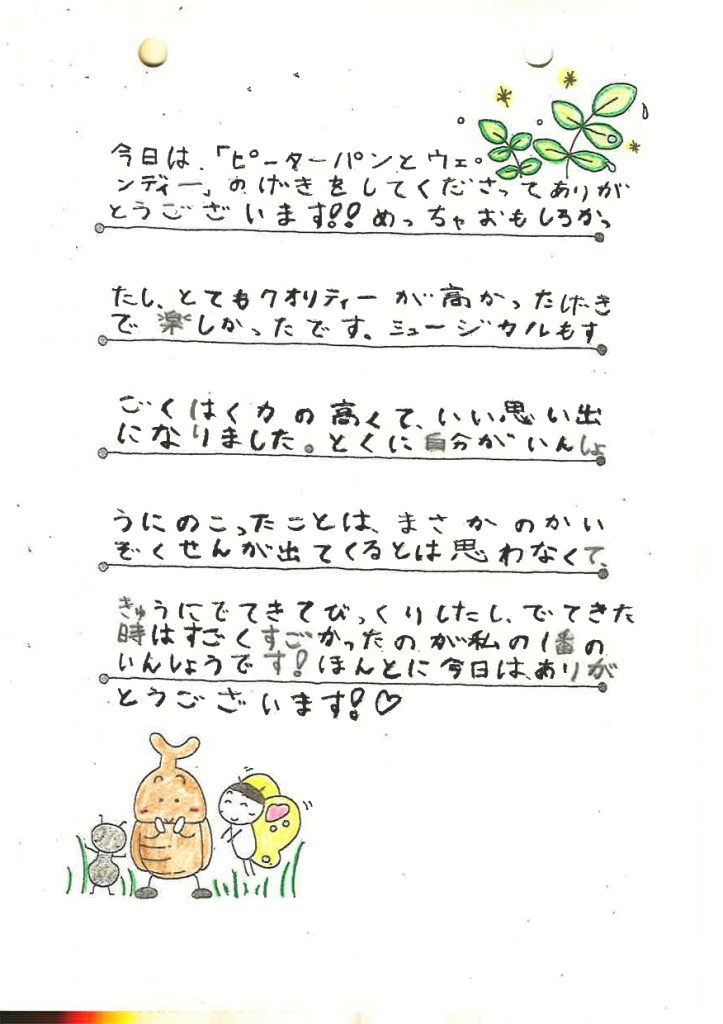 今日は、「ピーターパンとウェ
ンディー」のげきをしてくださってありが
とうございます!!めっちゃおもしろかっ
たし、とてもクオリティーが高かったげき
で楽しかったです。ミュージカルもす
ごくはく力の高くて、いい思い出
になりました。とくに自分がいんしょ
うにのこったことは、まさかのかい
ぞくせんが出てくるとは思わなくて、
きゅうにでてきてびっくりしたし、でてきた
時はすごくすごかったのが私の1番の
いんしょうです!ほんとに今日は、ありが
とうございます!♡